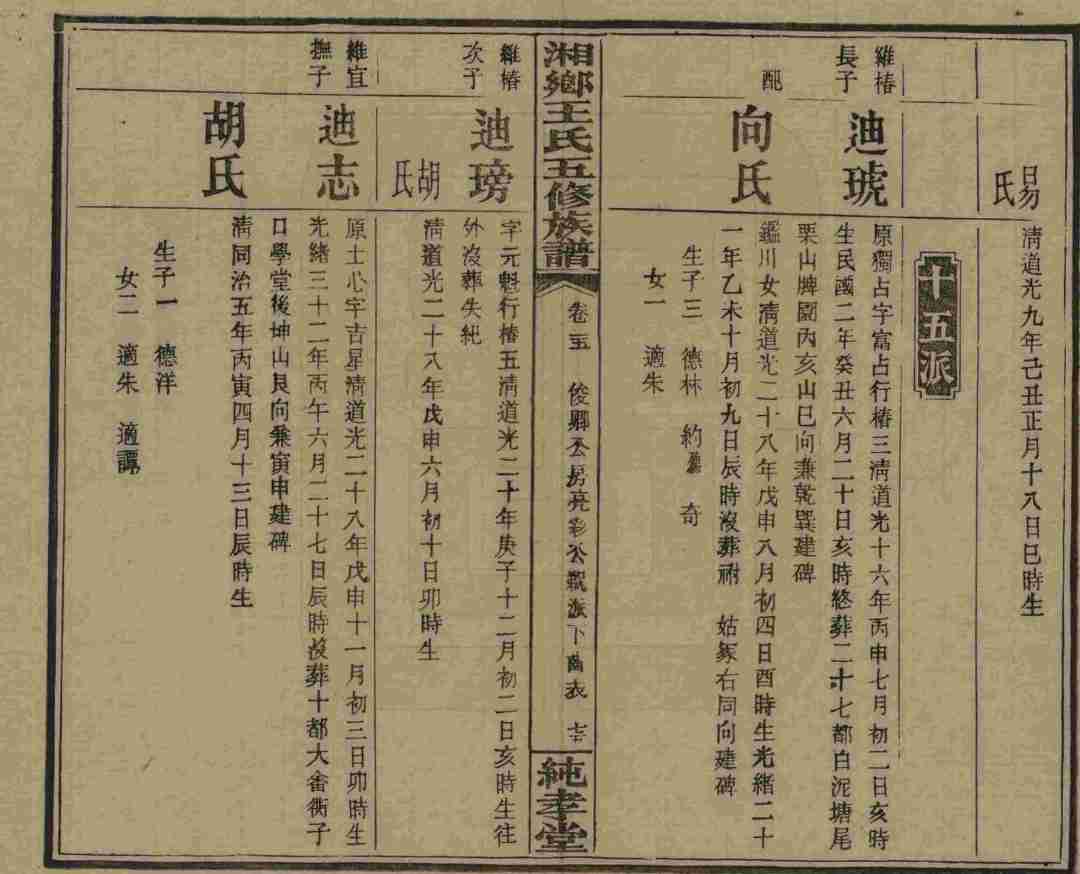 易氏
清道光九年己丑正月十八日巳時生
十五派
維椿長子
迪琥
原獨占字富占行椿三清道光十六年丙申七月初二日亥時
生民國二年癸丑六月二十日亥時終葬二十七都白泥塘尾
栗山牌圖丙亥山巳向兼乾巽建碑
配
向氏
鑑川女清道光二十八年戊申八月初四日酉時生光緒二十
一年乙未十月初九日辰時沒葬祔 姑冢右同向建碑
生子三 德林 約 奇
女一 適朱
湘鄉王氏五修族譜
卷 俊卿公房亮彩公 派下齒衣
純孝堂
維椿次子
迪塝
字元魁行椿五清道光二十年庚子十二月初二日亥時生往
外沒葬失紀
胡氏
清道光二十八年戊申六月初十日卯時生
維宜撫子
迪志
原士心字吉星清道光二十八年戊申十一月初三日卯時生
光緒三十二年丙午六月二十七日辰時沒葬十都大畬衕子
口學堂後坤山艮向兼寅申建碑
胡氏
清同治五年丙寅四月十三日辰時生
生子一 德洋
女二 適朱 適譚